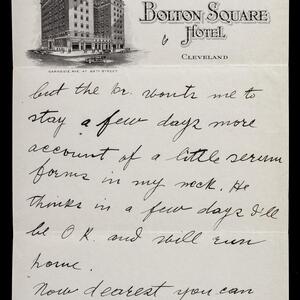 BOLTON SQUARE
HOTEL
6
CLEVELAND
CARNEGIE AVE. AT 89TH STREET
but the Dr. wants me to
stay a few days more
account of a little serum
forms in my neck. He
thinks in a few days I'll
be O K. and will run
home.
Now dearest you can